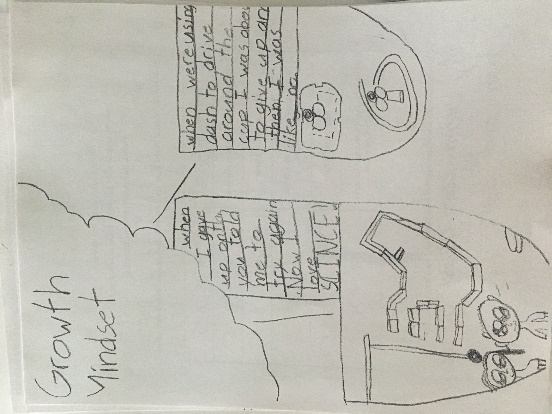 Growth
Mindset
when
I gave
up onto
you told
me to
try again
Now I
love
SCINCE!
when were using
dash to drive
around the
cup I was abou
to give up an
then I was
like no